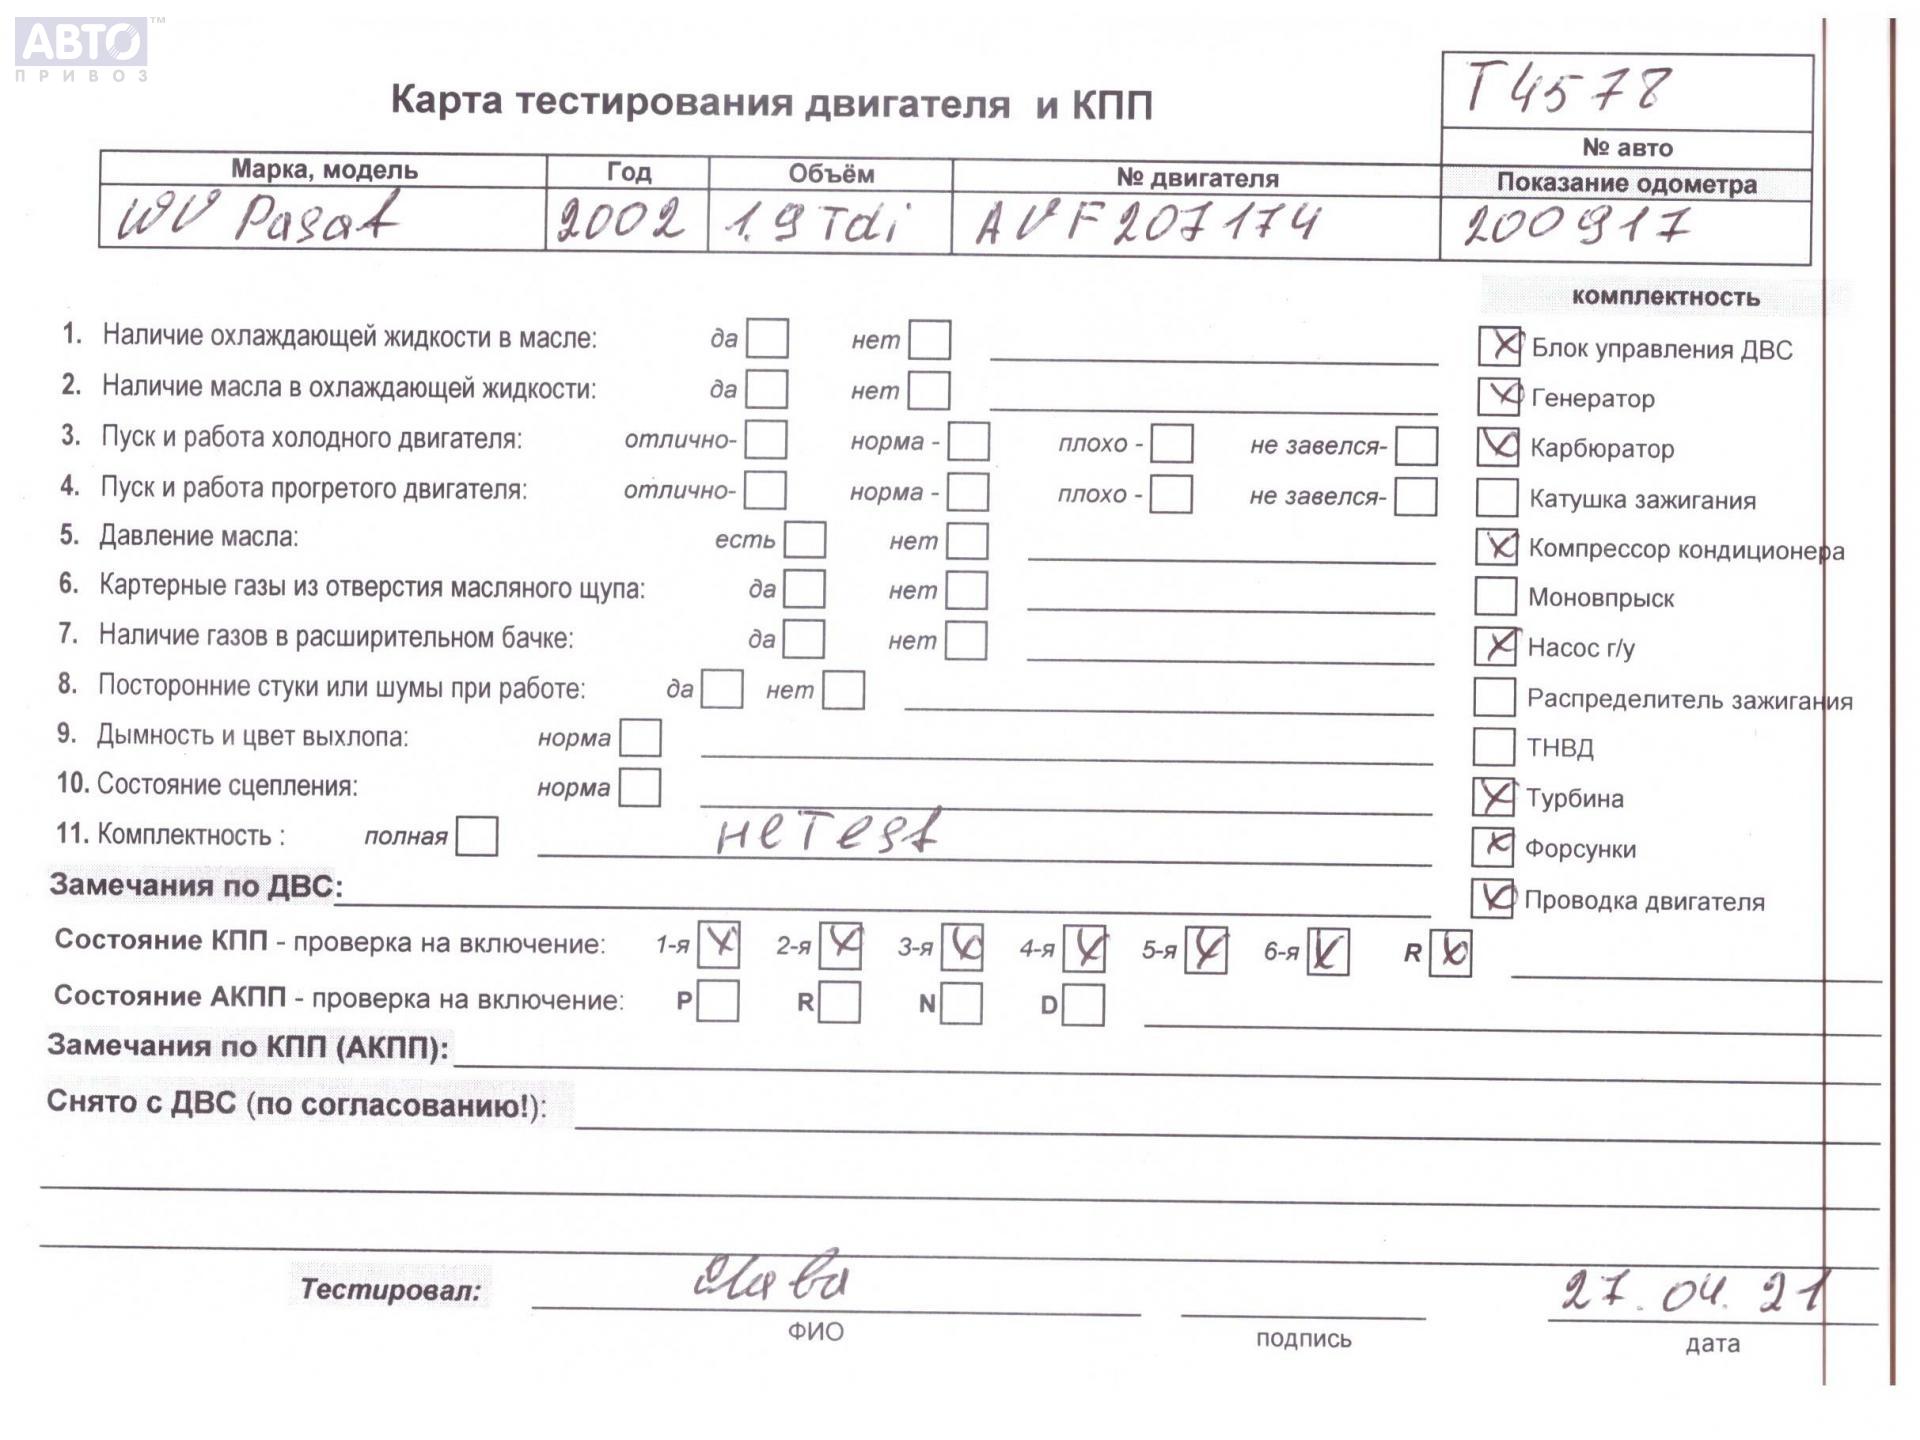 АВТО™
ПРИВОЗ
Карта тестирования двигателя и КПП
Т4578
№ авто
Марка, модель Год Объём № двигателя Показание одометра
WV Pasat 2002 1.9 Tdi AVF207174 200917
комплектность
1. Наличие охлаждающей жидкости в масле: да нет
Блок управления ДВС
2. Наличие масла в охлаждающей жидкости: да нет
Генератор
3. Пуск и работа холодного двигателя: отлично- норма - плохо - не завелся-
Карбюратор
4. Пуск и работа прогретого двигателя: отлично- норма - плохо - не завелся-
Катушка зажигания
5. Давление масла: есть нет
Компрессор кондиционера
6. Картерные газы из отверстия масляного щупа: да нет
Моновпрыск
7. Наличие газов в расширительном бачке: да нет
Насос г/у
8. Посторонние стуки или шумы при работе: да нет
Распределитель зажигания
9. Дымность и цвет выхлопа: норма
ТНВД
10. Состояние сцепления: норма
Турбина
11. Комплектность : полная неTest
Форсунки
Замечания по ДВС:
Проводка двигателя
Состояние КПП - проверка на включение: 1-я 2-я 3-я 4-я 5-я 6-я R
Состояние АКПП - проверка на включение: P R N D
Замечания по КПП (АКПП):
Снято с ДВС (по согласованию!):
Тестировал: Слава 27.04.21
ФИО подпись дата